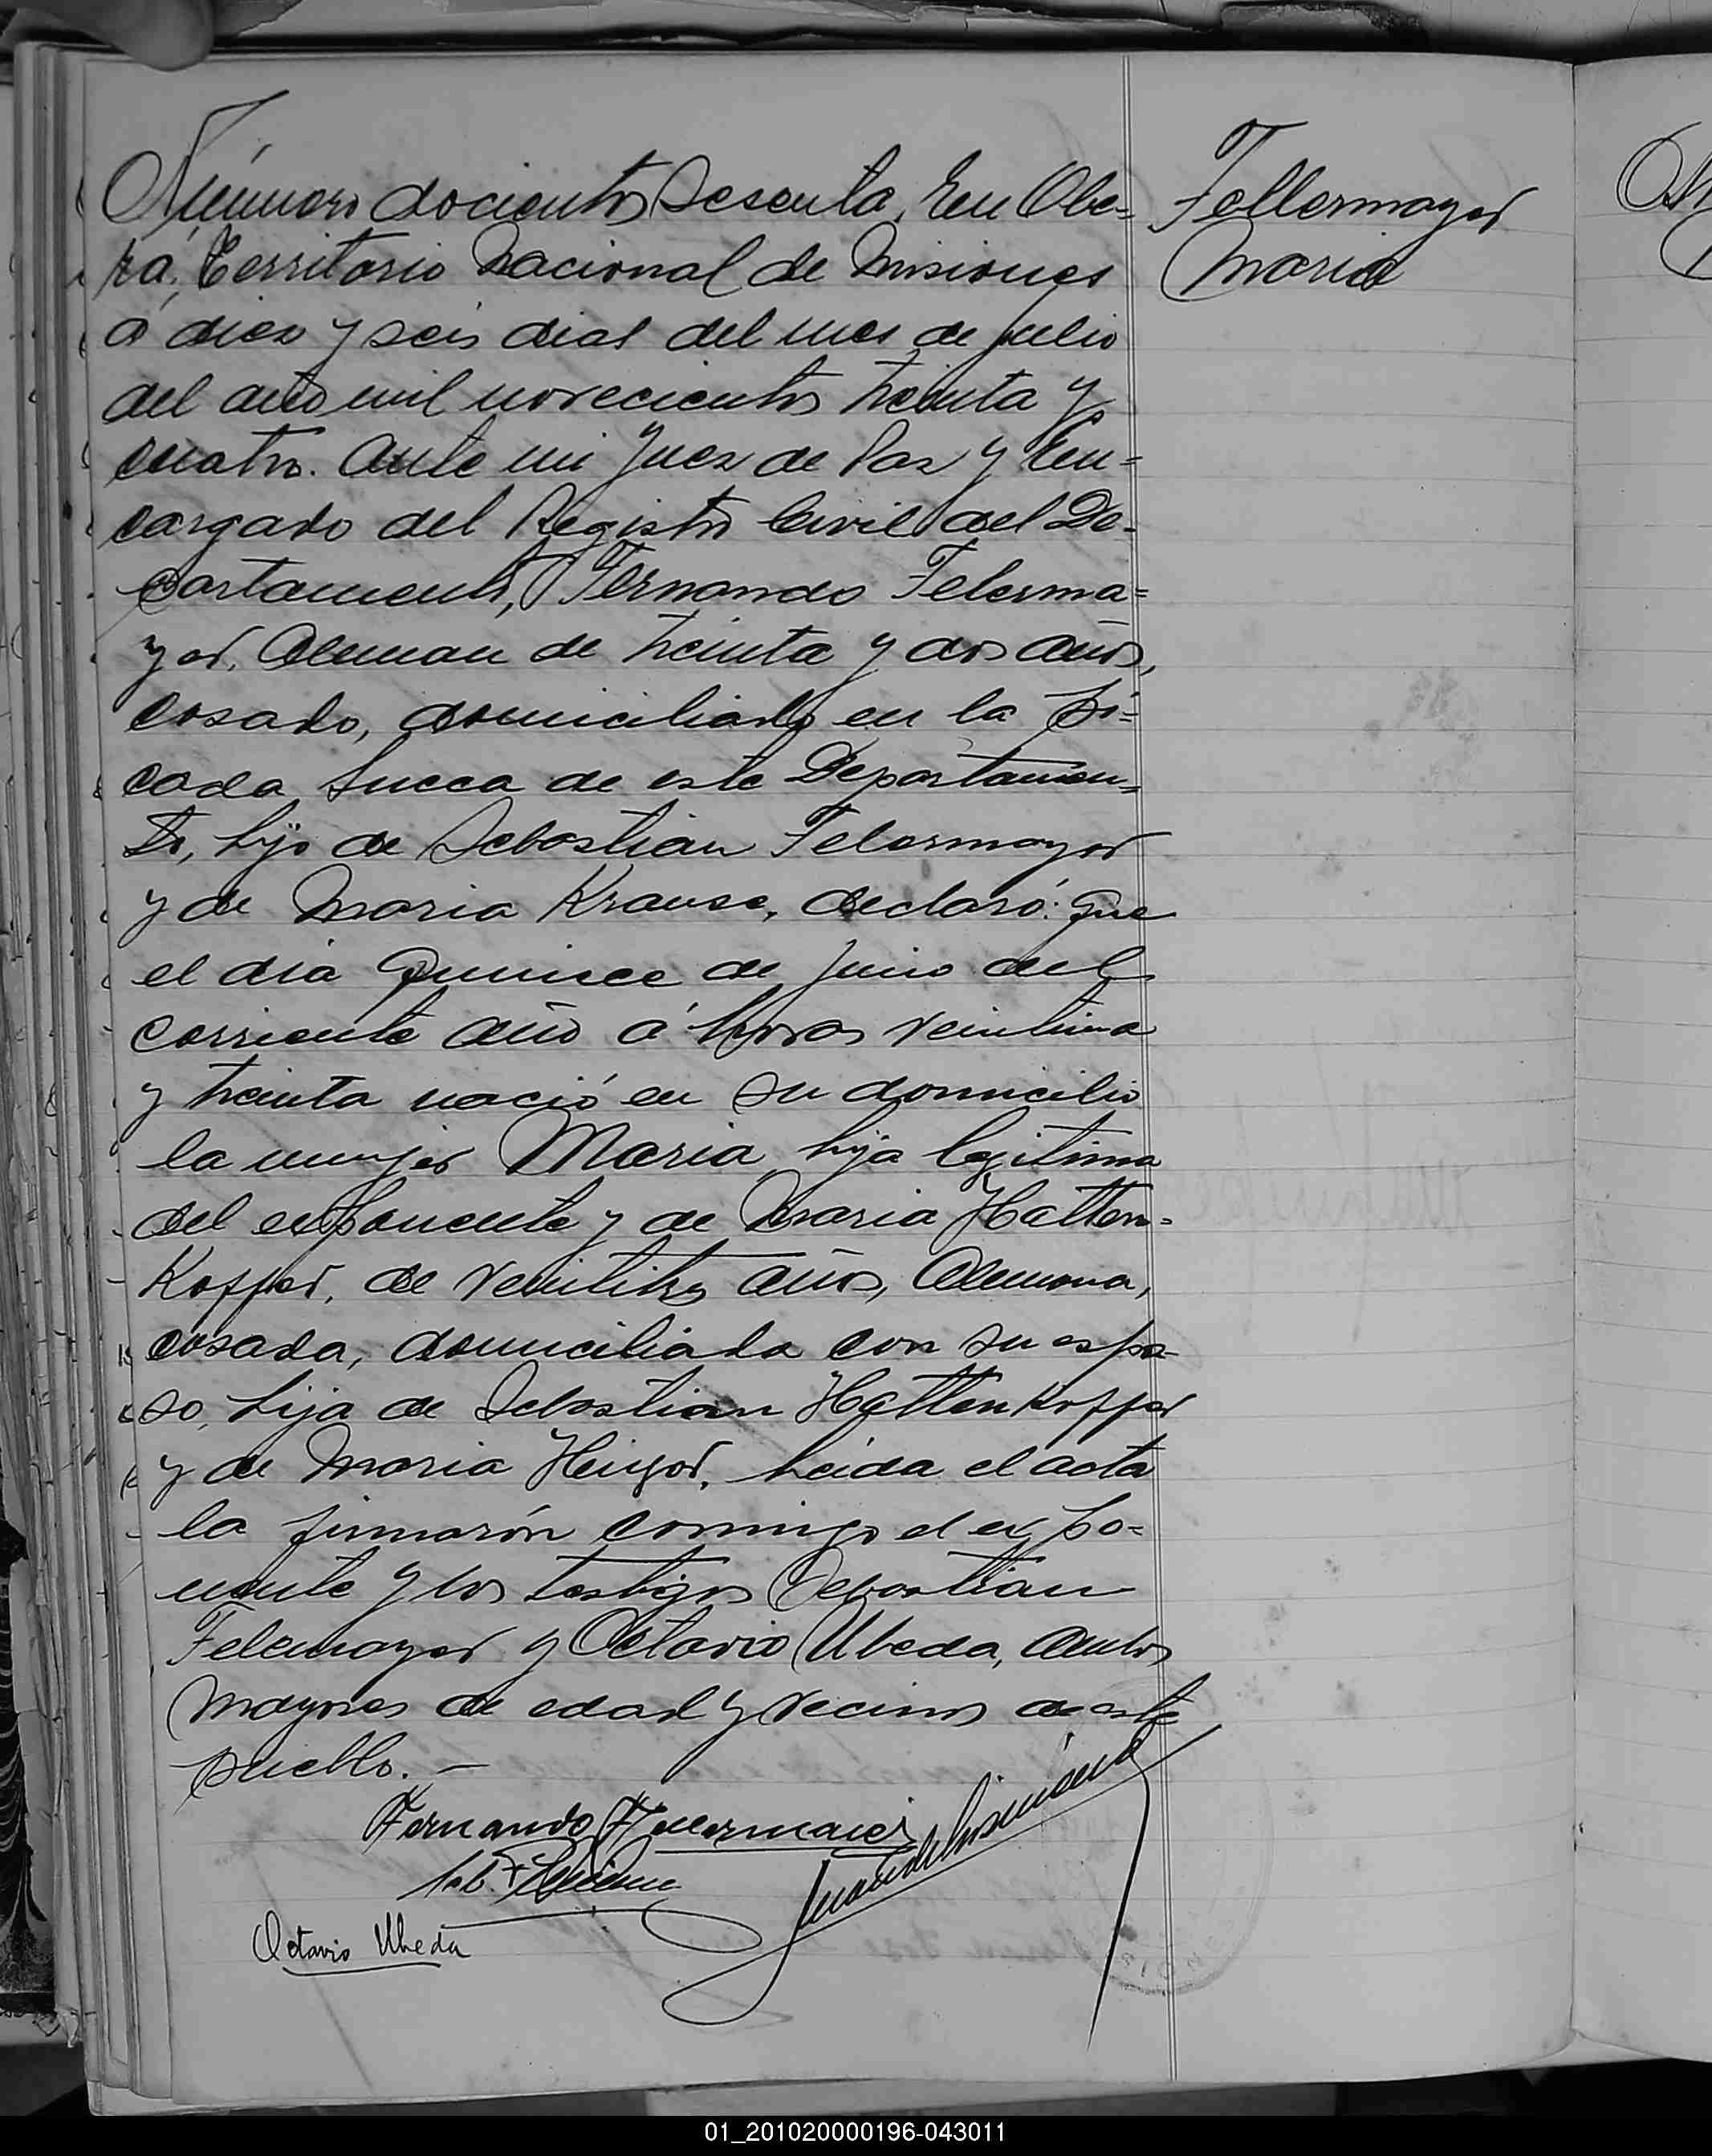 Número docientos Sesenta. En Obe=
rá, Territorio Nacional de Misiones
á diez y seis dias del mes de julio
del año mil novecientos treinta y
cuatro. Ante mi Juez de Paz y En=
cargado del Registro Civil del De=
partamento, Fernando Felerma=
yer, Aleman de treinta y dos años,
casado, domiciliado en la Pi=
cada Sueca de este Departamen=
to, hijo de Sebastian Felermayer
y de Maria Krause, declaró: Que
el dia Quinse de Junio del
corriente año á horas veintiuna
y treinta nació en su domicilio
la mujer Maria hija legitima
del exponente y de Maria Hatten=
Koffer, de veintitres años, Alemana,
casada, domiciliada con su espo=
so, hija de Sebastian Hattenkoffer
y de Maria. Leida el acta
la firmarón conmigo el expo=
nente y los testigos Sebastian
Felermayer y Octavio Ubeda, ambos
mayores de edad y vecinos de este
pueblo. —
Fernando
Octavio Ubeda
Fellermayer
Maria
01_201020000196-043011